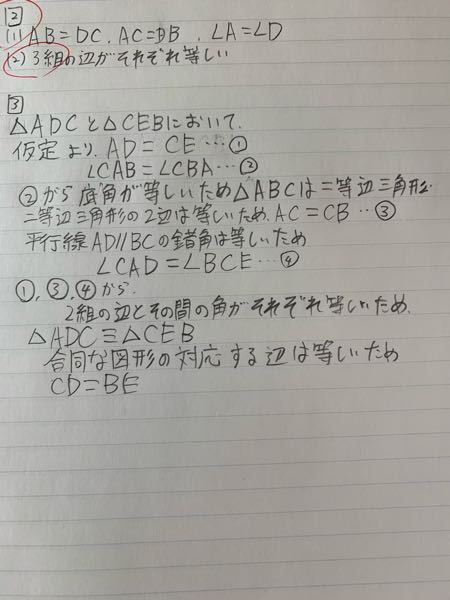 2
(1) AB=DC. AC=DB. ∠A=∠D
(2) 3組の辺がそれぞれ等しい
3
△ADCと△CEBにおいて.
仮定より. AD=CE…①
∠CAB=∠CBA…②
②から底角が等しいため△ABCは二等辺三角形.
二等辺三角形の2辺は等しいため. AC=CB…③
平行線AD//BCの錯角は等しいため
∠CAD=∠BCE…④
①,③,④から.
2組の辺とその間の角がそれぞれ等しいため.
△ADC≡△CEB
合同な図形の対応する辺は等しいため
CD=BE